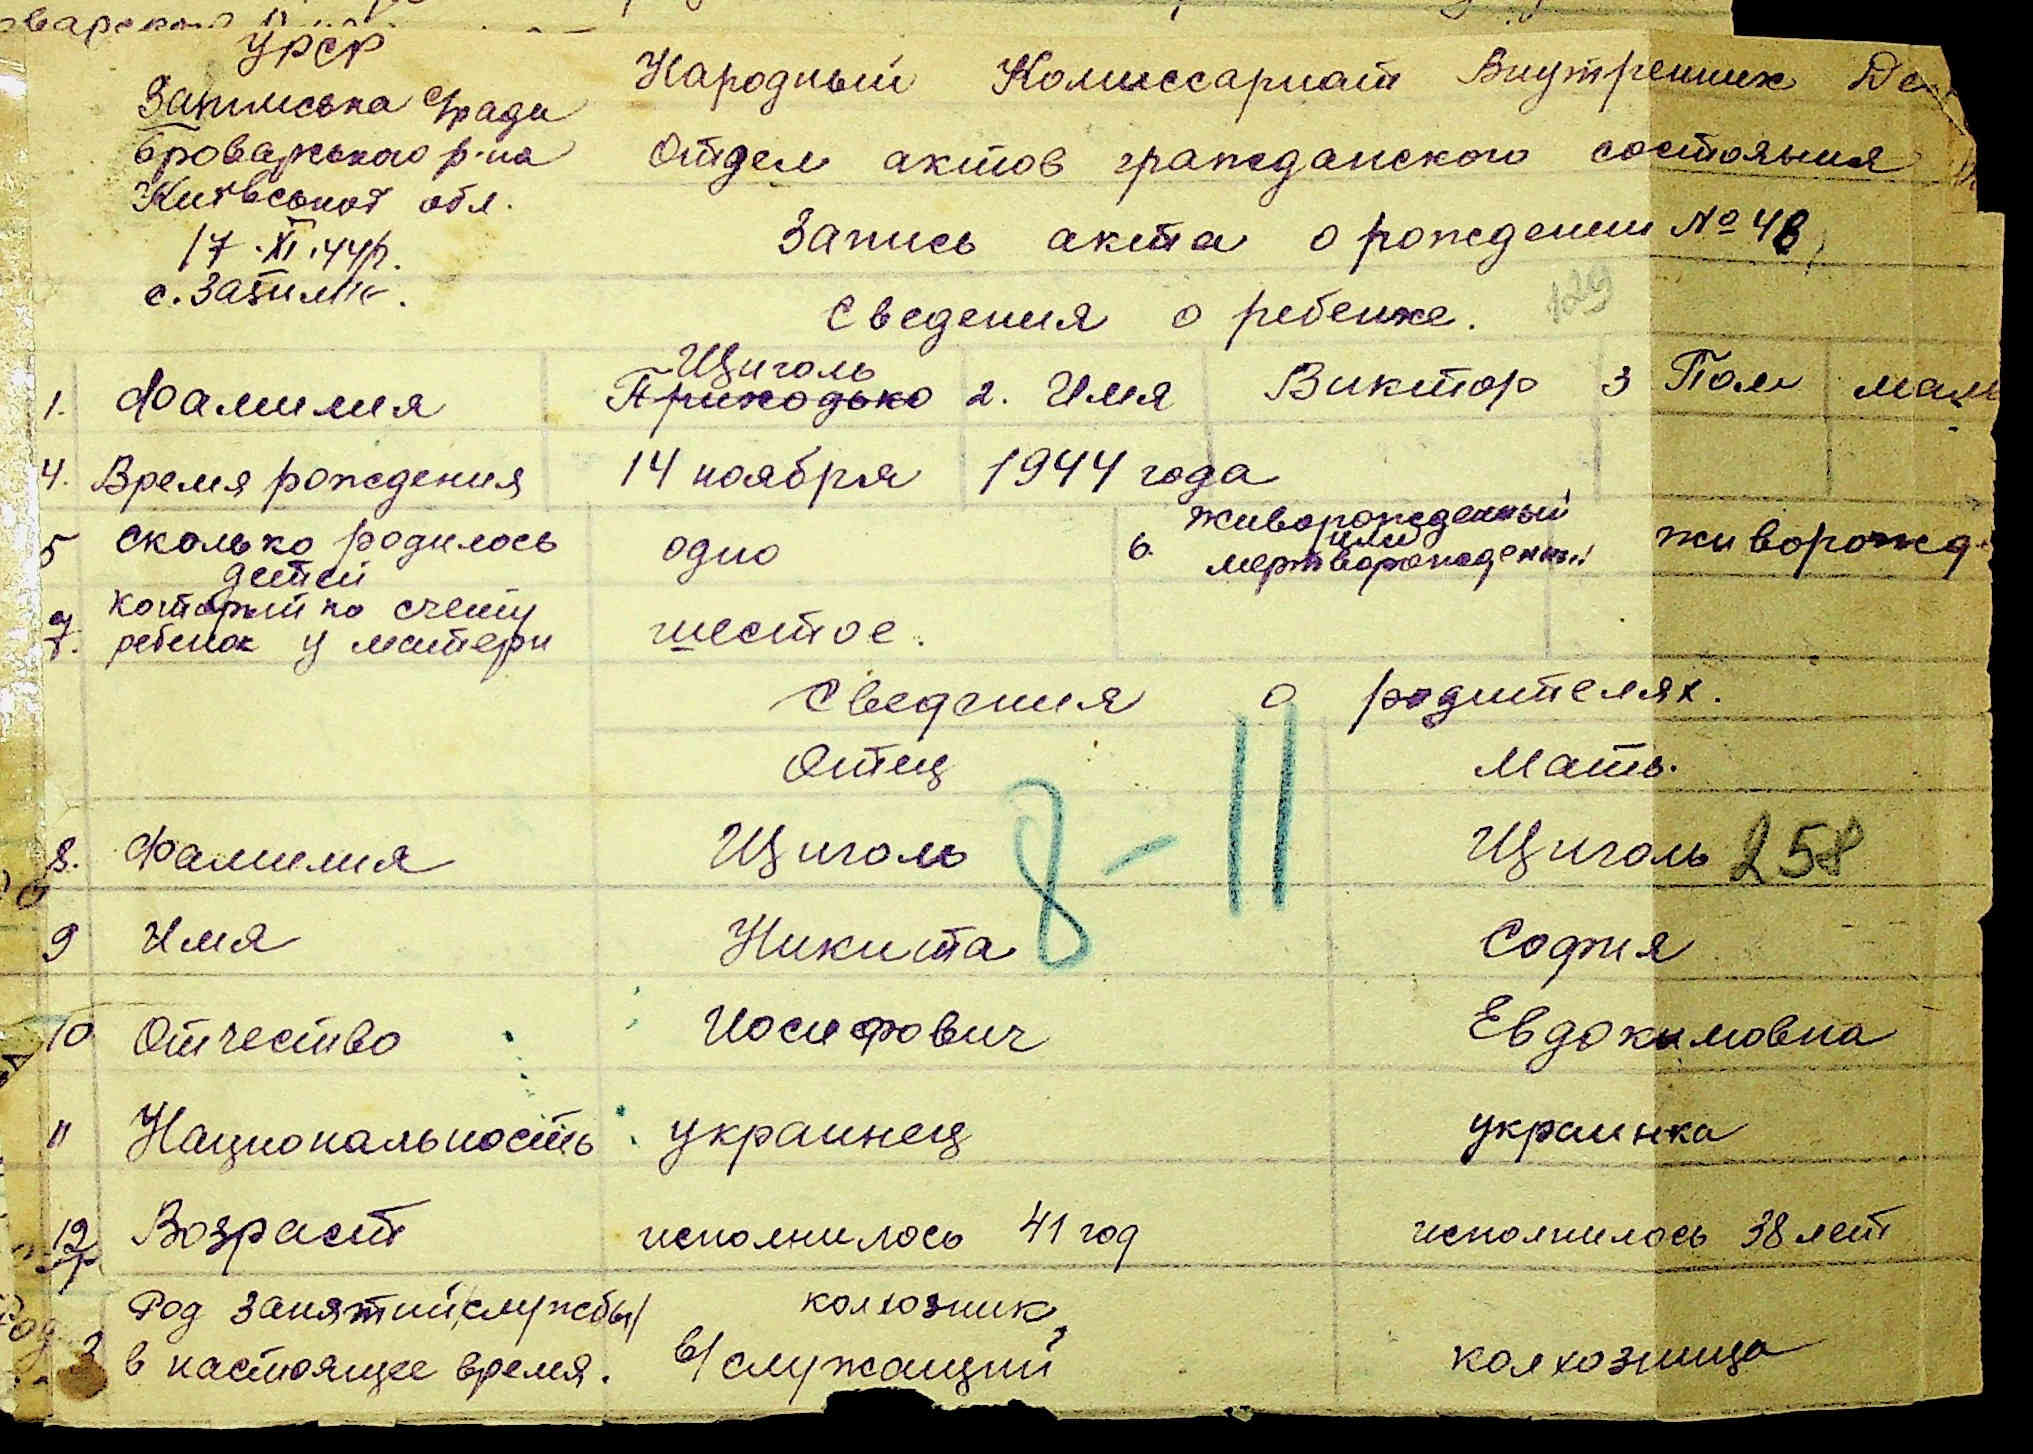 УРСР
Зазимська С/рада
Броварського р-на
Київської обл.
17.XI.44р.
с. Зазимье.
Народный Комиссариат Внутренних Де
Отдел актов гражданского состояния
Запись акта о рождении № 48
129
Сведения о ребенке.
1. Фамилия Щиголь Приходько 2. Имя Виктор 3 Пол маль
4. Время рождения 14 ноября 1944 года
5 сколько родилось детей одно 6. живорожденный или мертворожденный живорожд.
7. который по счету ребенок у матери шестое.
Сведения о родителях.
Отец Мать.
8. Фамилия Щиголь Щиголь 258
8-11
9 Имя Никита София
10 Отчество Иосифович Евдокимовна
11 Национальность украинец украинка
12 Возраст исполнилось 41 год исполнилось 38 лет
Род занятий/службы/ колхозник,
в настоящее время. в/служащий колхозница